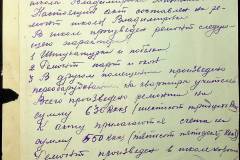 школы Владимировка
Настоящий акт составлен на ре-
монт школы Владимировки
В школе произведен ремонт следую-
щего характера
1 Штукатурка и побелка
2 Ремонт парт и окон
3 В другом помещении произведено
переоборудование на квартиру учителей
Всего произведено ремонта на
сумму 630 (шестьсот тридцать
К акту прилагаются счета на
сумму 550 (пятьсот пятьдесят
Ремонт произведен в школе